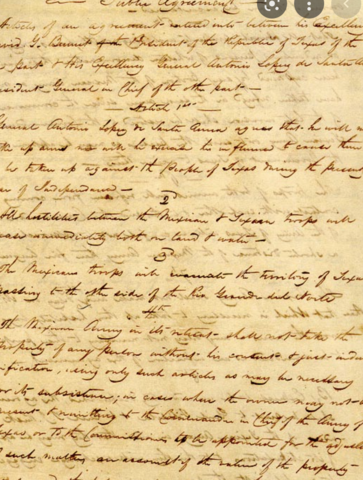 Public Agreement
Articles of an agreement entered into between his Excellency
David G. Burnet of the President of the Republic of Texas of the
one part & His Excellency General Antonio Lopez de Santa Anna
President General in Chief of the other part —
Article 1st —
General Antonio Lopez de Santa Anna agrees that he will
take up arms nor will he to influence to cause them
to be taken up against the People of Texas during the present
war of Independence —
2d
All hostilities between the Mexican & Texian troops will
cease immediately both on land & water —
3d
The Mexican troops will evacuate the territory of Texas
passing to the other side of the Rio Grande del Norte
4th
The Mexican Army in its retreat shall not take the
property of any person without his consent & just indem
nification, using only such articles as may be necessary
for its subsistence, in cases where the owner may not be
present & remitting to the Commander in Chief of the Army of
Texas or to the Commissioners to be appointed for the adjustment
of such matters, an account of the value of the property —